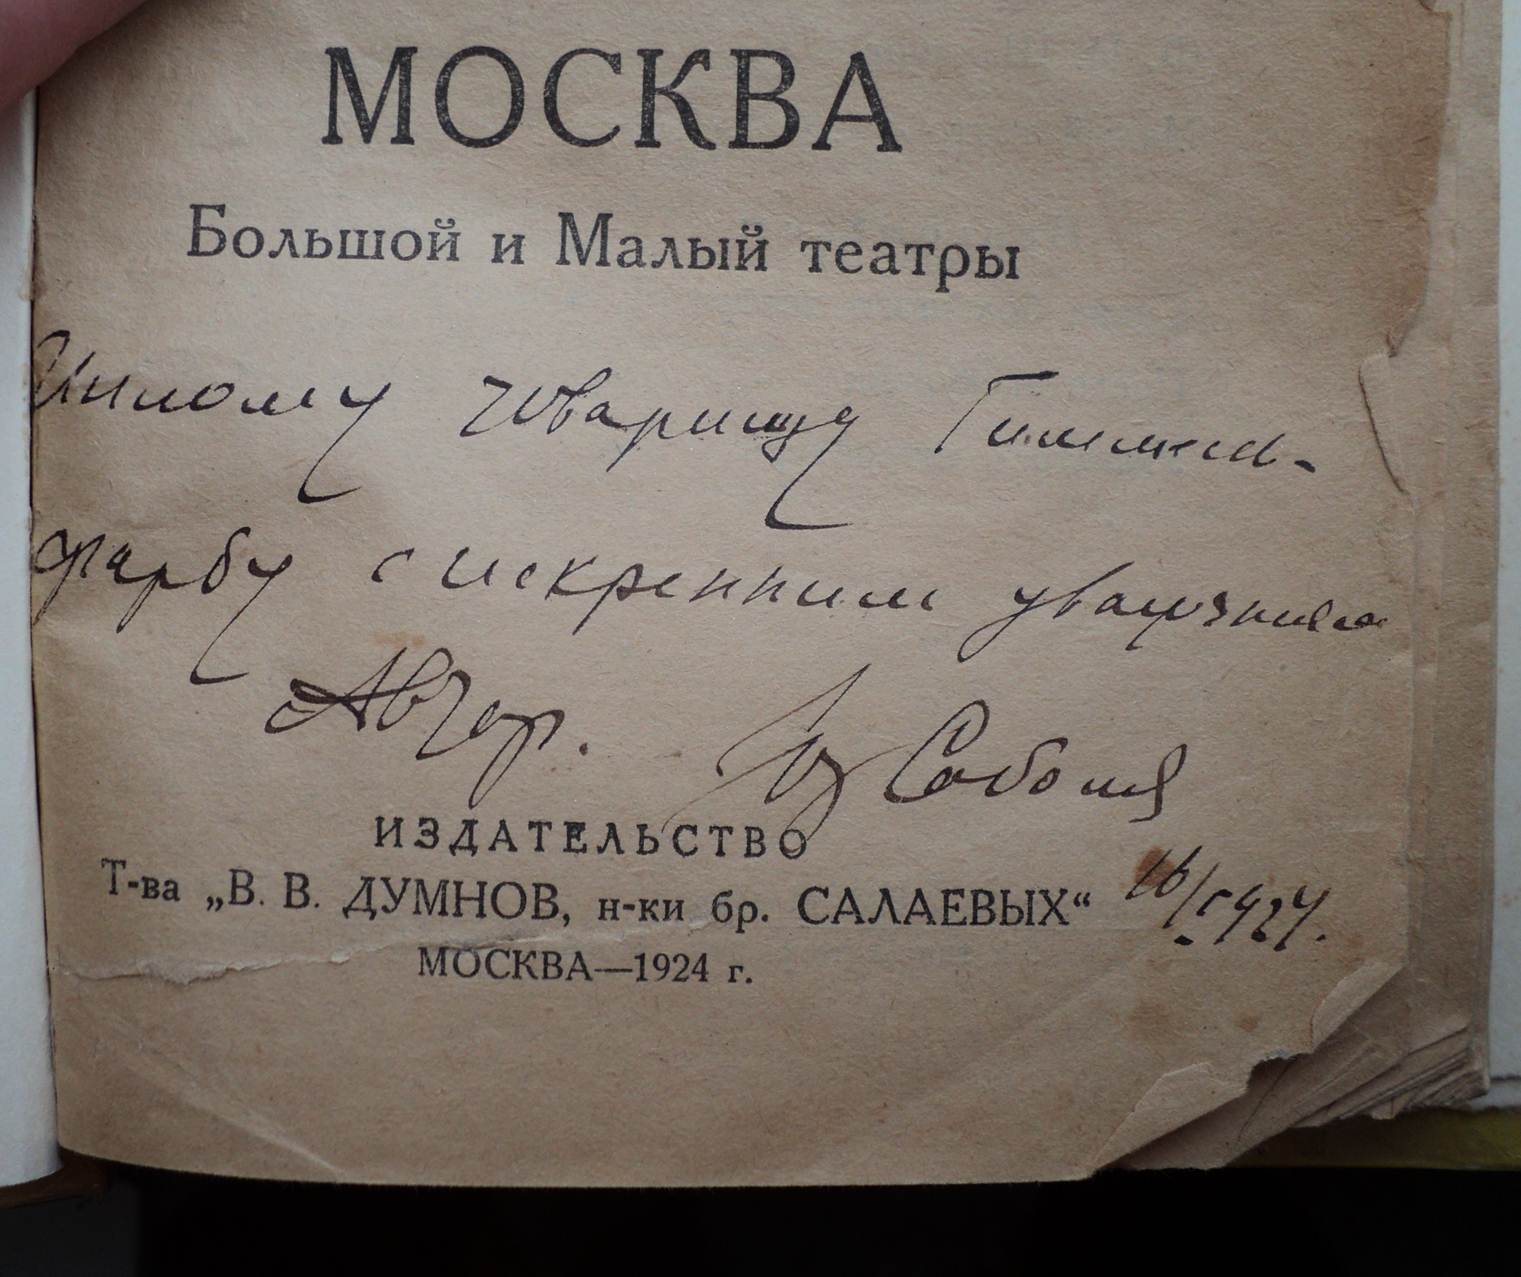 МОСКВА
Большой и Малый театры
Милому товарищу Гиммель-
фарбу с искренним уважением
Автор. Ю Соболев
ИЗДАТЕЛЬСТВО
Т-ва „В. В. ДУМНОВ, н-ки бр. САЛАЕВЫХ“
МОСКВА—1924 г.